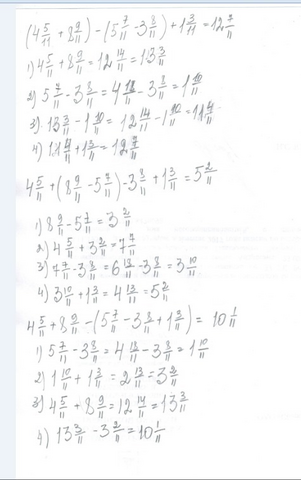 (4 5/11 + 8 9/11) - (5 7/11 - 3 8/11) + 1 3/11 = 12 7/11
1) 4 5/11 + 8 9/11 = 12 14/11 = 13 3/11
2) 5 7/11 - 3 8/11 = 4 18/11 - 3 8/11 = 1 10/11
3) 13 3/11 - 1 10/11 = 12 14/11 - 1 10/11 = 11 4/11
4) 11 4/11 + 1 3/11 = 12 7/11
4 5/11 + (8 9/11 - 5 7/11) - 3 8/11 + 1 3/11 = 5 2/11
1) 8 9/11 - 5 7/11 = 3 2/11
2) 4 5/11 + 3 2/11 = 7 7/11
3) 7 7/11 - 3 8/11 = 6 18/11 - 3 8/11 = 3 10/11
4) 3 10/11 + 1 3/11 = 4 13/11 = 5 2/11
4 5/11 + 8 9/11 - (5 7/11 - 3 8/11 + 1 3/11) = 10 1/11
1) 5 7/11 - 3 8/11 = 4 18/11 - 3 8/11 = 1 10/11
2) 1 10/11 + 1 3/11 = 2 13/11 = 3 2/11
3) 4 5/11 + 8 9/11 = 12 14/11 = 13 3/11
4) 13 3/11 - 3 2/11 = 10 1/11